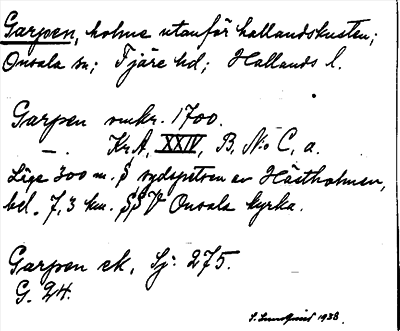 Garpen, holme utanför hallandskusten;
Onsala sn; Fjäre hd; Hallands l.
Garpen omkr. 1700.
— . KrA, XXIV, B, No C, a.
Läge 300 m. S sydspetsen av Hästholmen,
bel. 7,3 km. SSV Onsala kyrka.
Garpen ek, Sj: 275.
G. 24.
S. Lundqvist 1938.